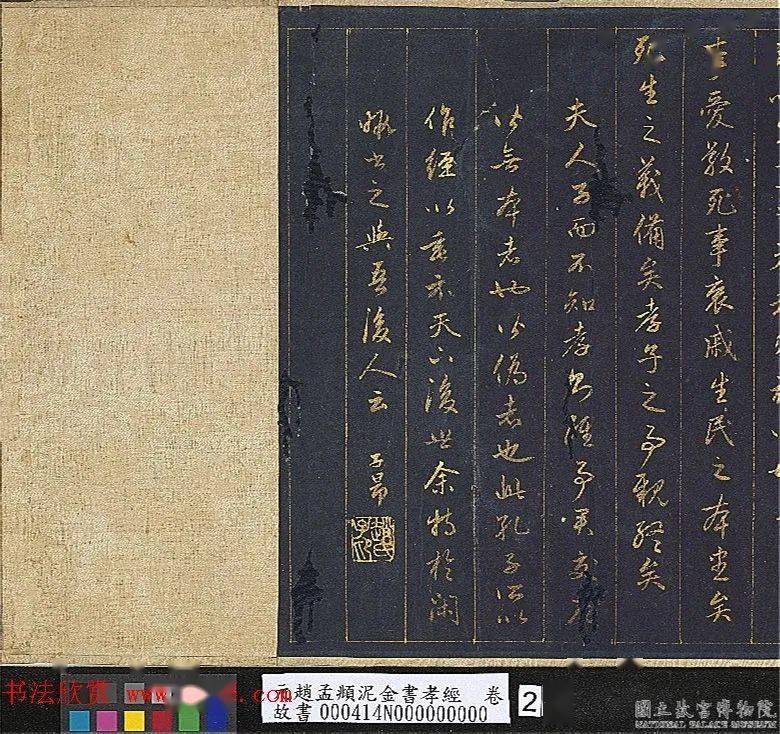 事愛敬死事哀戚生民之本盡矣
死生之義備矣孝子之事親終矣
夫人子而不知孝
無本者也 偽者也此孔子所以
作經以垂示天下後世余特於閑
暇書之與吾後人云 子昂
趙氏子昂
元趙孟頫泥金書孝經 卷
故書000414N000000000
2
书法欣赏 www. .com
國立故宮博物院
NATIONAL PALACE MUSEUM